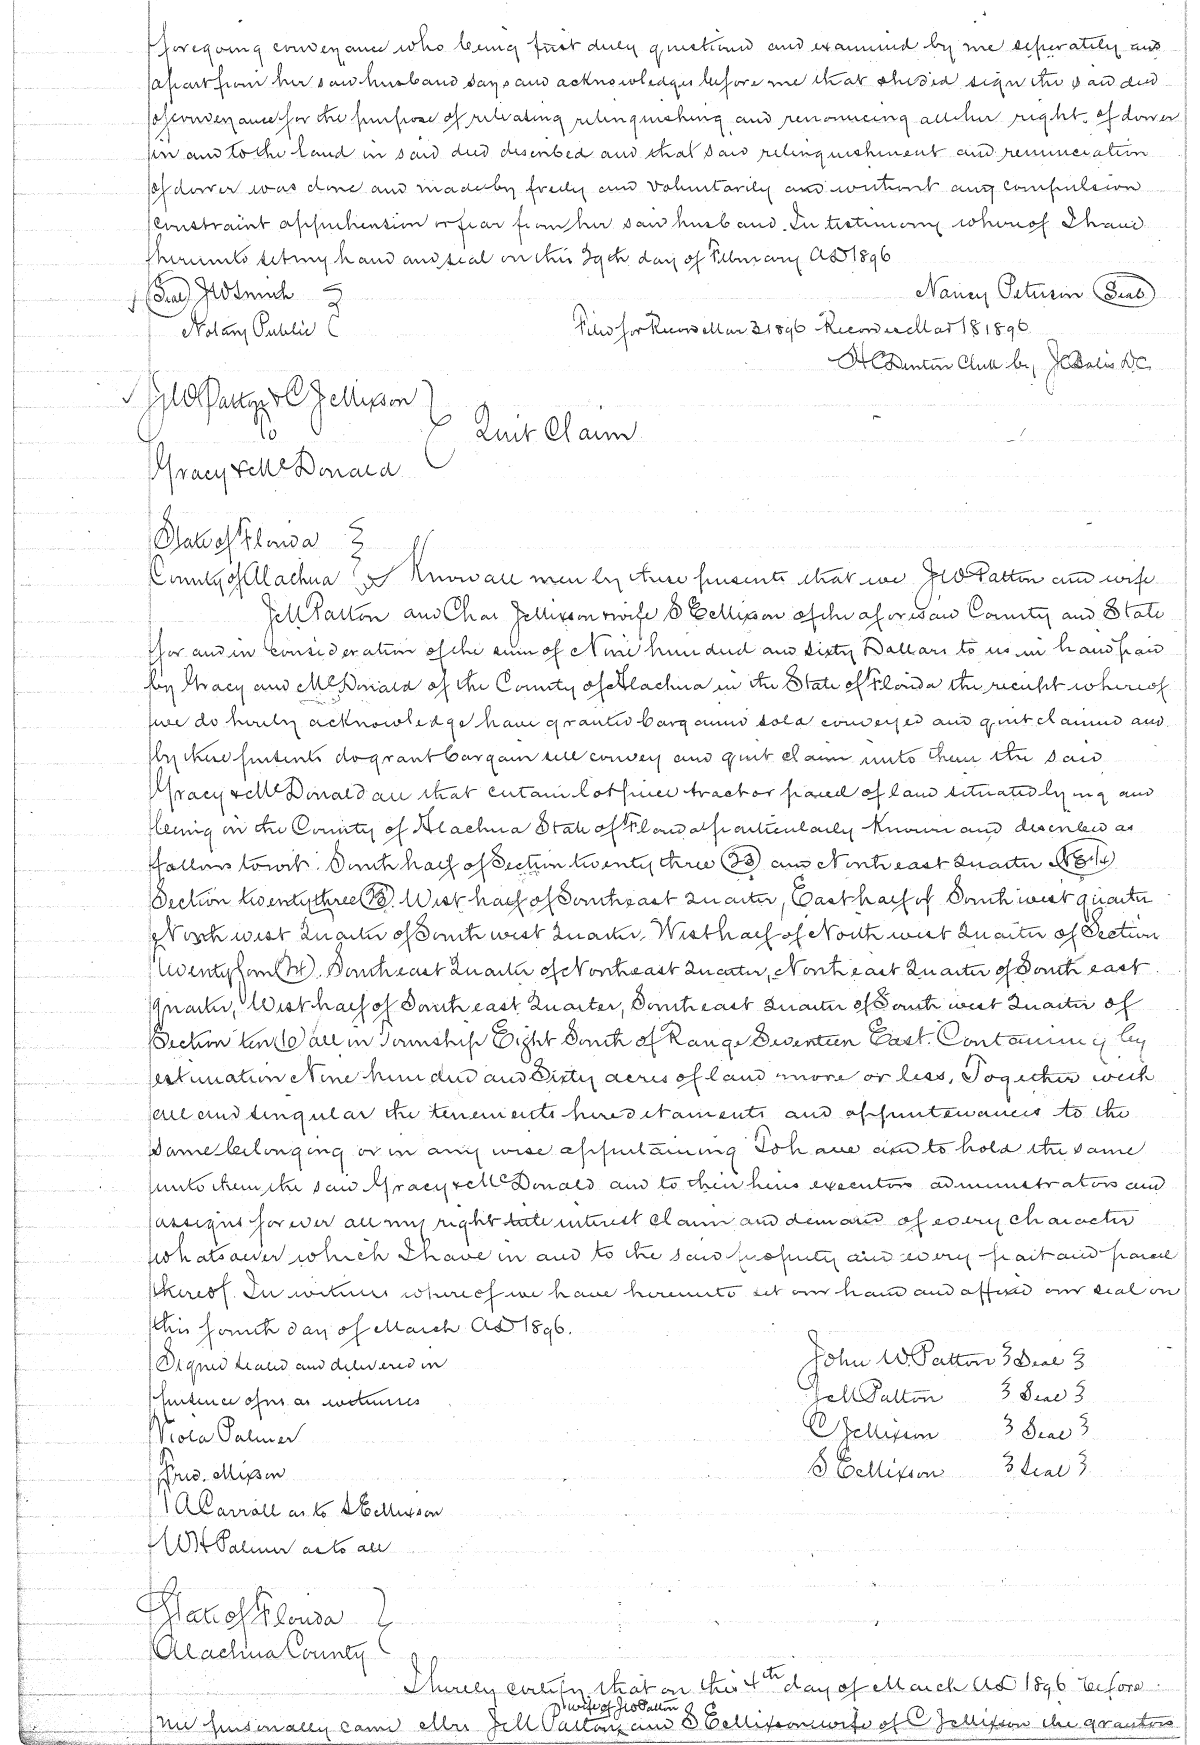 foregoing conveyance who being first duly questioned and examined by me seperately and
apart from her said husband says and acknowledges before me that she did sign the said deed
of conveyance for the purpose of releasing relinquishing and renouncing all her right of dower
in and to the land in said deed described and that said relinquishment and renunciation
of dower was done and made by freely and voluntarily and without any compulsion
constraint apprehension or fear from her said husband. In testimony whereof I have
hereunto set my hand and seal on this 29th day of February AD 1896
(Seal) JW Smith Nancy Peterson (Seal)
Notary Public Filed for Record Mar 2 1896 Recorded Mar 18 1896
HC Denton Clerk by DC
JW Patton & C
to
Gracy & McDonald
Quit Claim
State of Florida
County of Alachua Know all men by these presents that we JW Patton and wife
Patton and Chas wife of the aforesaid County and State
for and in consideration of the sum of Nine hundred and sixty Dollars to us in hand paid
by Gracy and McDonald of the County of Alachua in the State of Florida the receipt whereof
we do hereby acknowledge have granted bargained sold conveyed and quit claimed and
by these presents do grant bargain sell convey and quit claim unto them the said
Gracy & McDonald all that certain lot piece tract or parcel of land situated lying and
being in the County of Alachua State of Florida particularly known and described as
follows to wit: South half of Section twenty three (23) and North east Quarter NE 1/4
Section twenty three (23), West half of Southeast Quarter, East half of South west quarter
North west Quarter of South west Quarter, West half of North west Quarter of Section
twenty four (24). South east Quarter of North east Quarter, North east Quarter of South east
quarter, West half of South east Quarter, South east Quarter of South west Quarter of
Section ten (10) all in Township Eight South of Range Seventeen East. Containing by
estimation Nine hundred and Sixty acres of land more or less, Together with
all and singular the tenements hereditaments and appurtenances to the
same belonging or in any wise appertaining To have and to hold the same
unto them the said Gracy & McDonald and to their heirs executors administrators and
assigns forever all my right title interest claim and demand of every character
whatsoever which I have in and to the said property and every part and parcel
thereof. In witness whereof we have hereunto set our hand and affixed our seal on
this fourth day of March AD 1896.
Signed sealed and delivered in John W. Patton Seal
presence of us as witnesses Patton Seal
Viola Palmer C Seal
Fred. Mixson Seal
A Carroll as to
WH Palmer as to all
State of Florida
Alachua County
I hereby certify that on this 4th day of March AD 1896 before
wife of JW Patton
me personally came Mrs Patton and wife of C the grantors